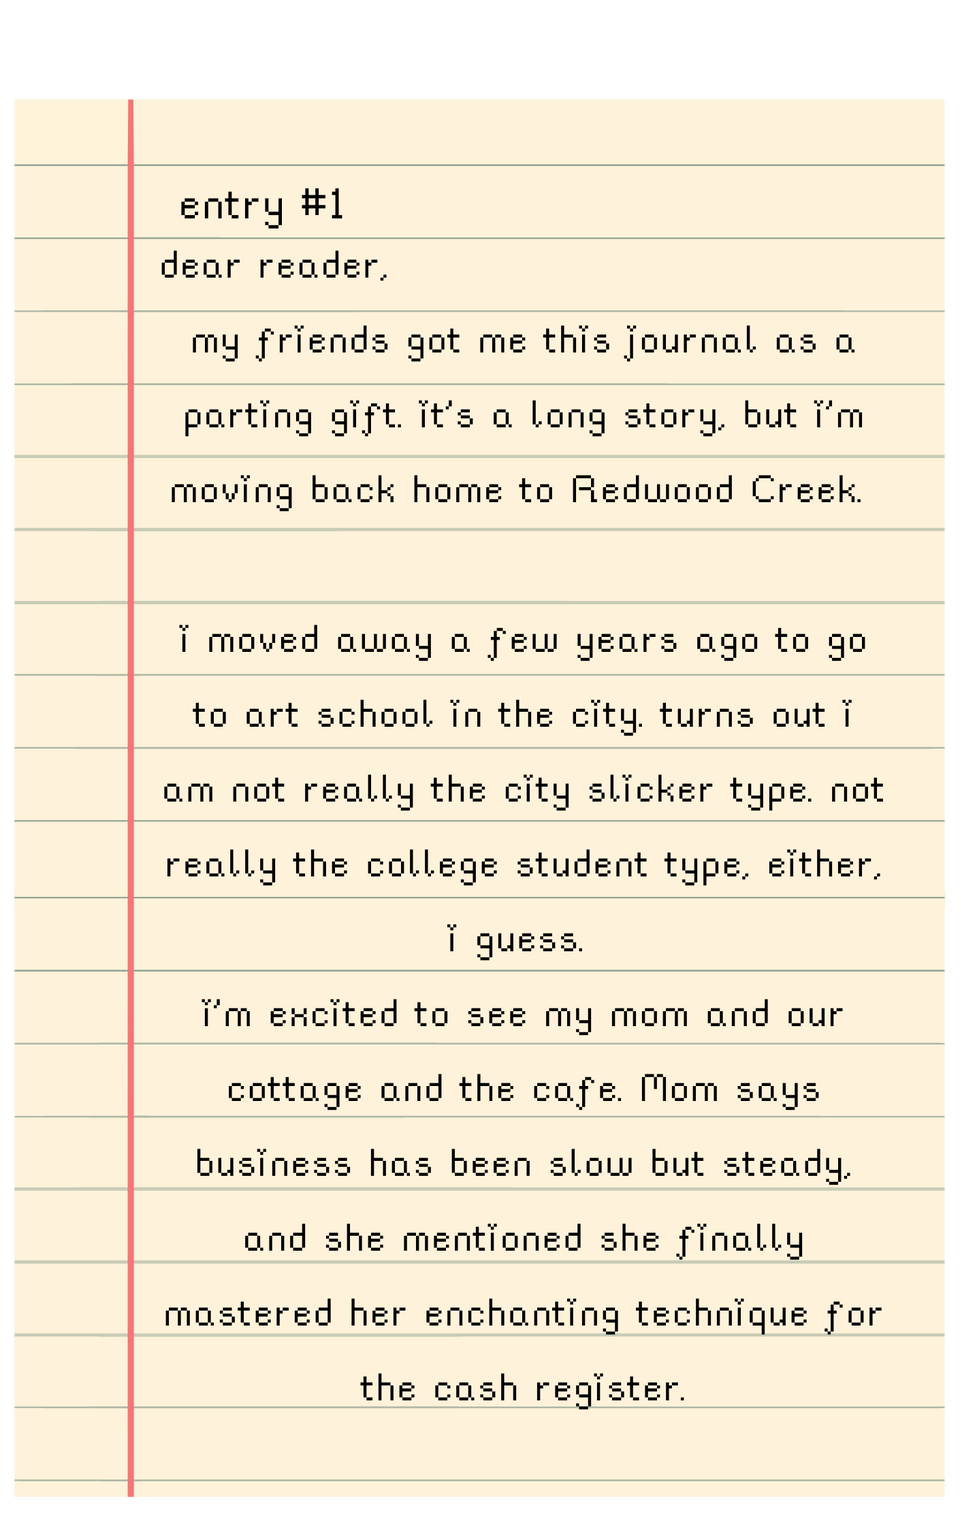 entry #1
dear reader,
my friends got me this journal as a
parting gift. it's a long story, but i'm
moving back home to Redwood Creek.
i moved away a few years ago to go
to art school in the city. turns out i
am not really the city slicker type. not
really the college student type, either,
i guess.
i'm excited to see my mom and our
cottage and the cafe. Mom says
business has been slow but steady,
and she mentioned she finally
mastered her enchanting technique for
the cash register.